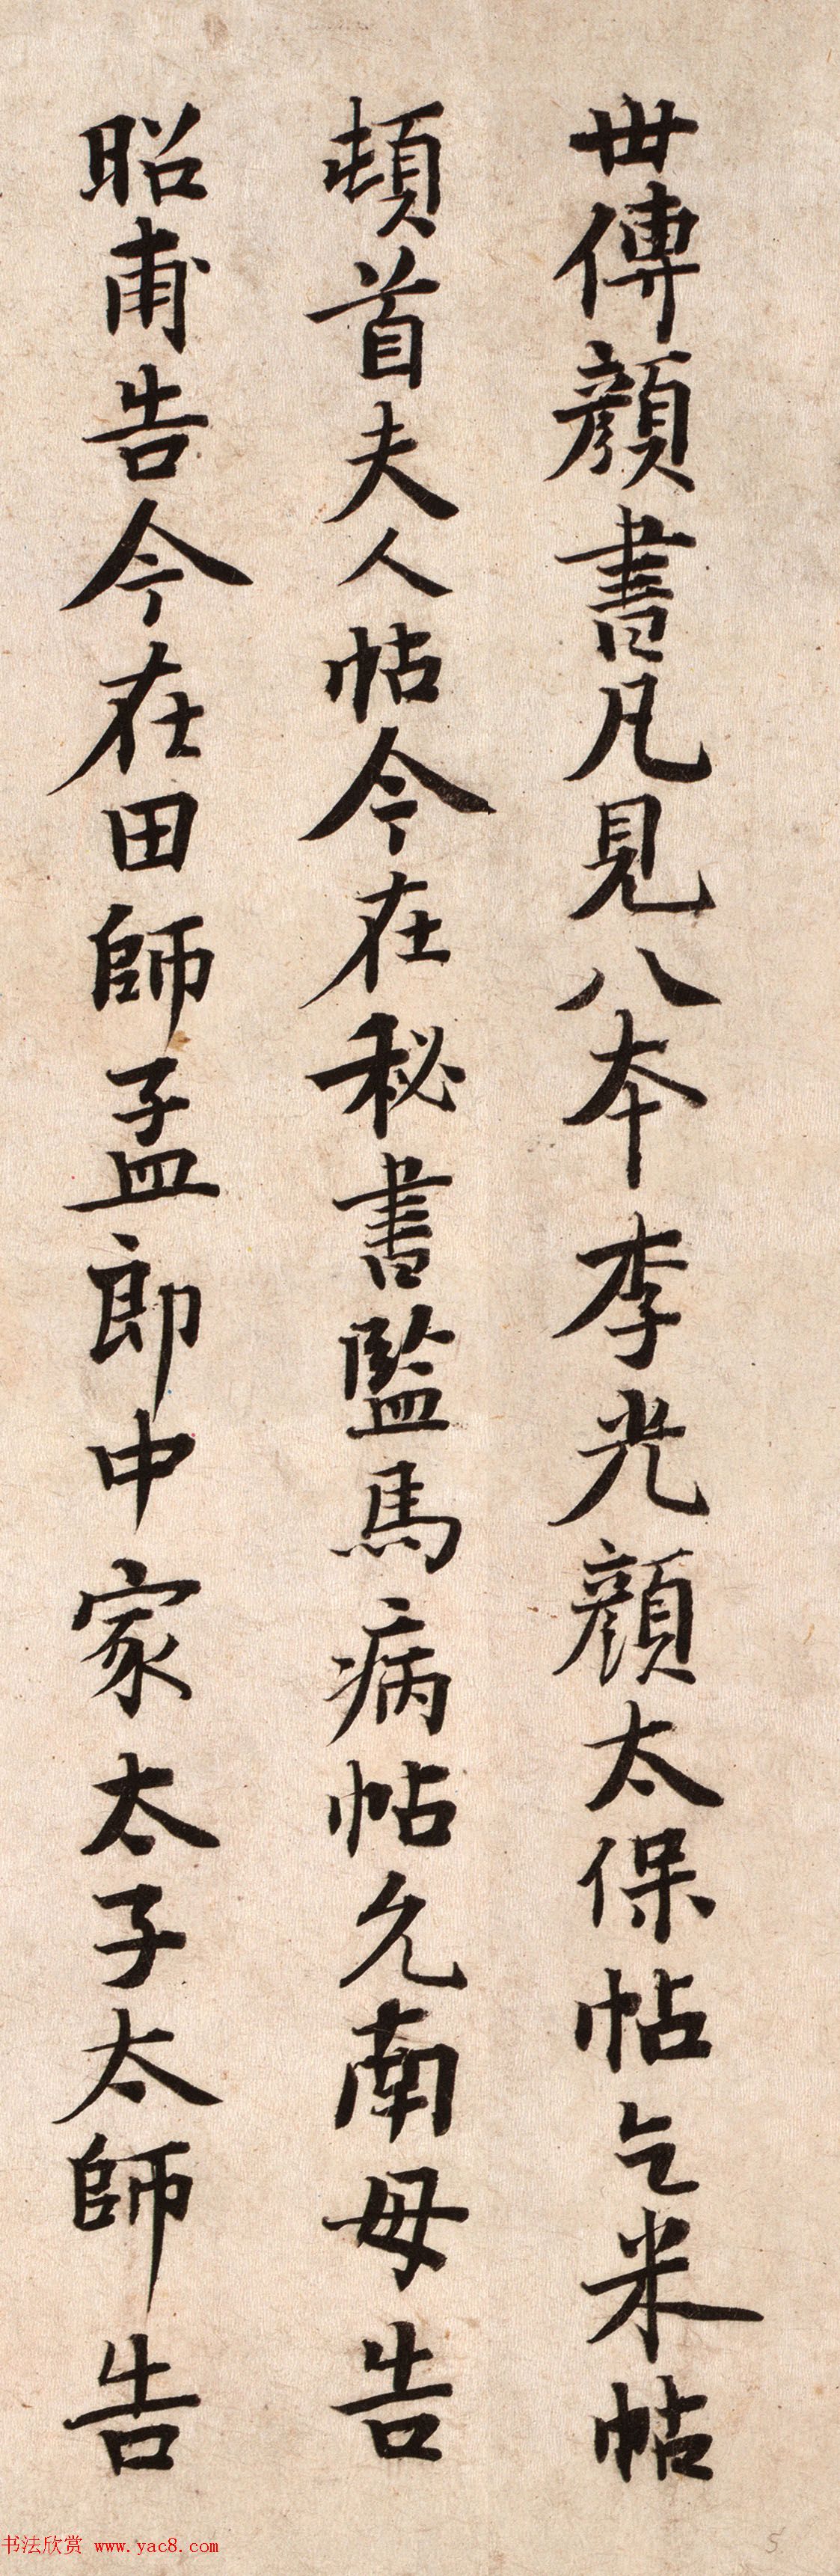 世傳顏書凡見八本李光顏太保帖乞米帖
頓首夫人帖今在秘書監馬病帖允南母告
昭甫告今在田師孟郎中家太子太師告
书法欣赏 www.yac8.com
5